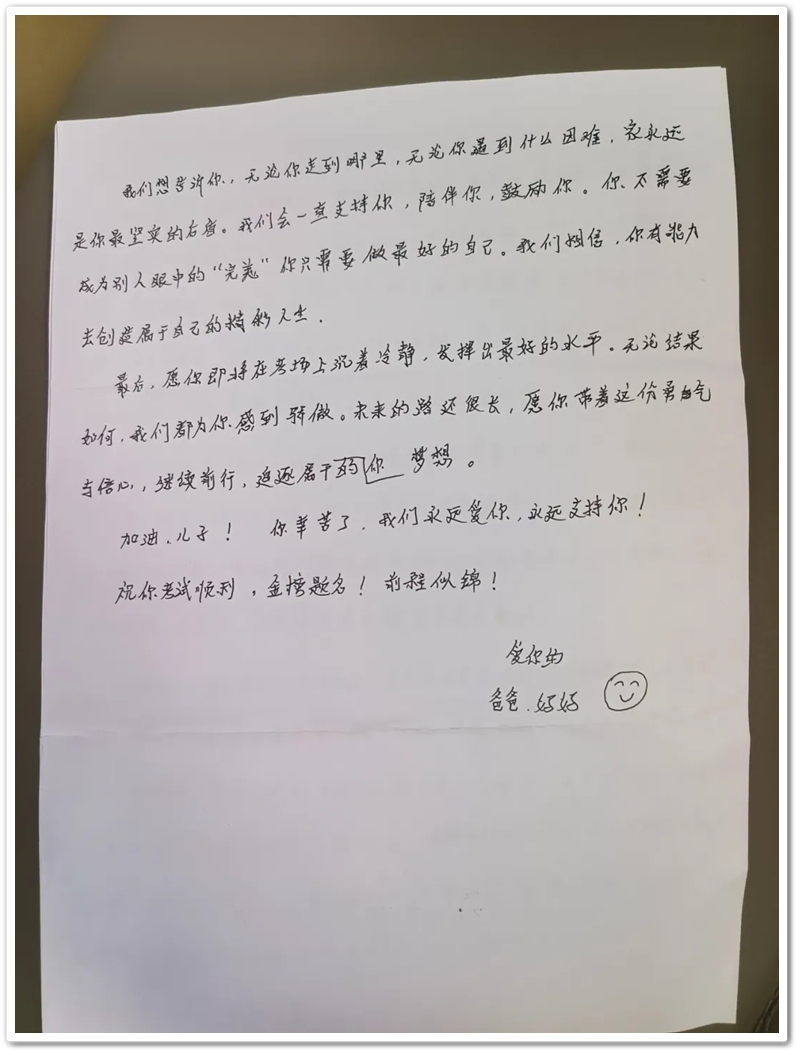 我们想告诉你，无论你走到哪里，无论你遇到什么困难，家永远
是你最坚实的后盾。我们会一直支持你，陪伴你，鼓励你。你不需要
成为别人眼中的“完美”你只需要做最好的自己。我们相信，你有能力
去创造属于自己的精彩人生.
最后，愿你即将在考场上沉着冷静，发挥出最好的水平。无论结果
如何，我们都为你感到骄傲。未来的路还很长，愿你带着这份勇气
与信心，继续前行，追逐属于你 梦想。
加油、儿子！ 你辛苦了，我们永远爱你，永远支持你！
祝你考试顺利，金榜题名！前程似锦！
爱你的
爸爸.妈妈